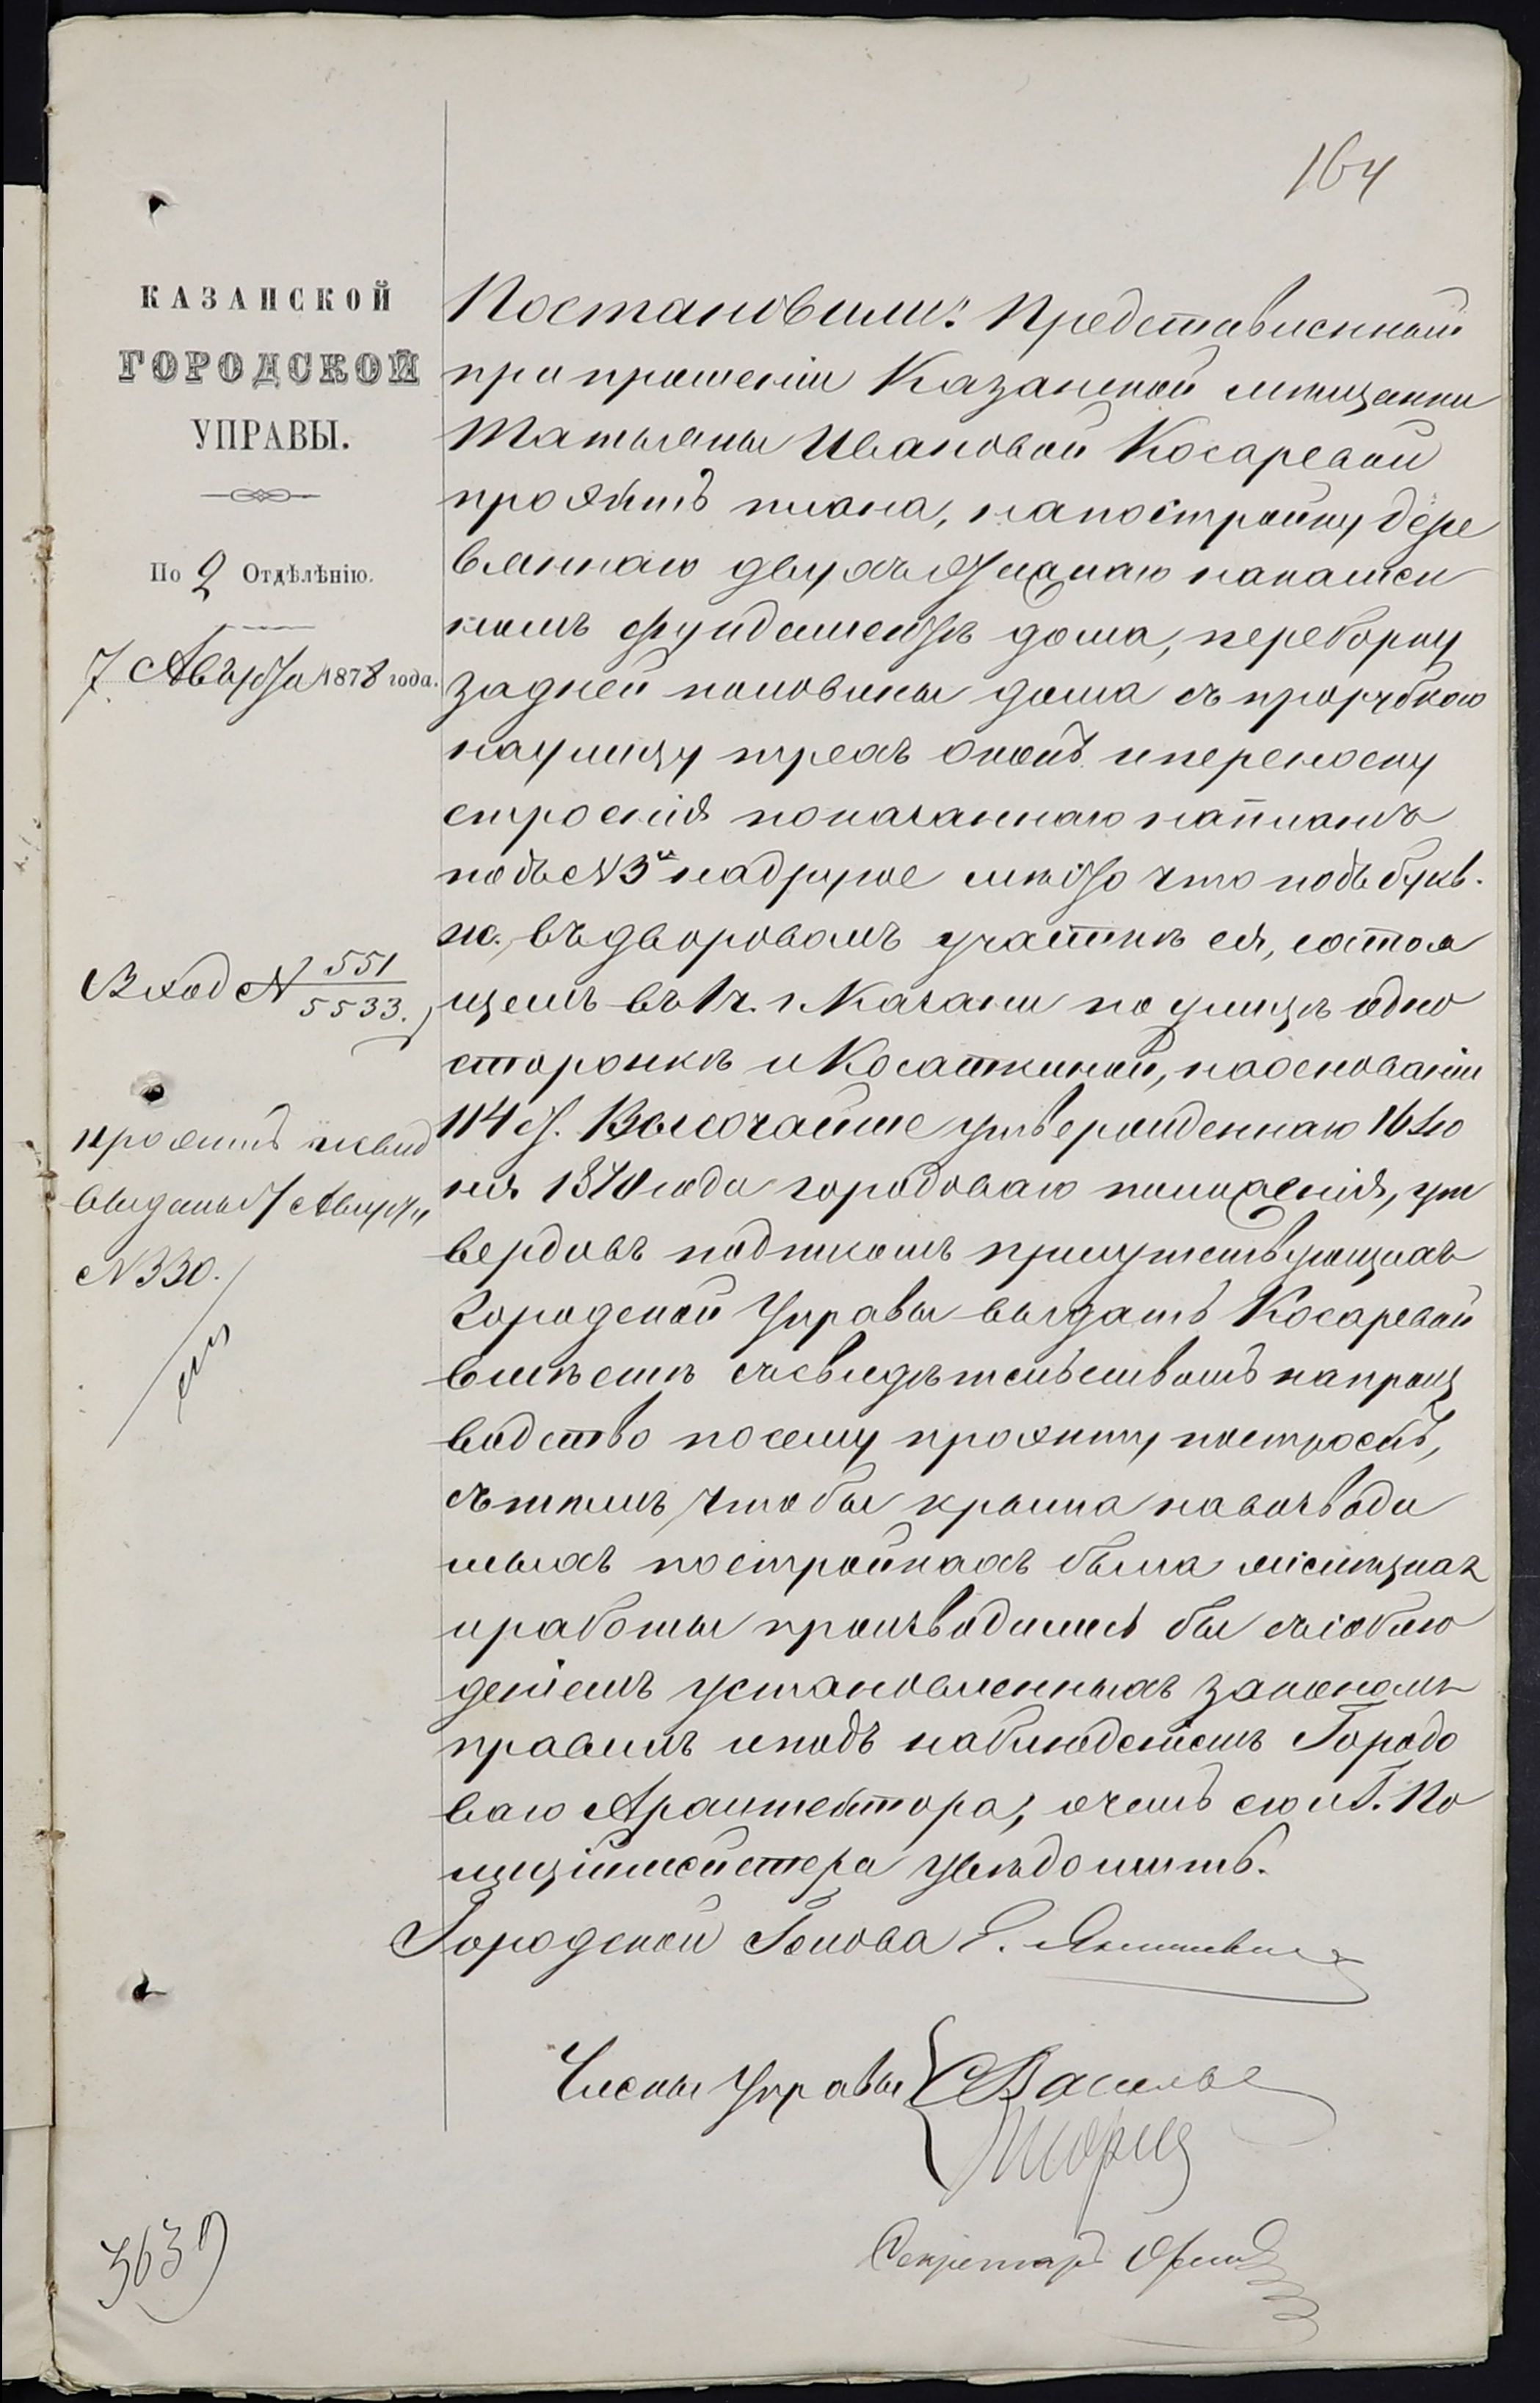 164
КАЗАНСКОЙ
ГОРОДСКОЙ
УПРАВЫ.
По 2 Отдѣленію.
7 Августа 1878 года.
Вход N 551/5533.
Проэктъ и свид
выданы 7 Августа
N 330.
3639
Постановили: Представленный
при прошеніи Казанской мѣщанки
Татьяны Ивановой Косаревой
проэктъ плана, на постройку дере
вяннаго двухъэтажнаго на камен
номъ фундаментѣ дома, переборку
задней половины дома съ прорубкою
на улицу трехъ оконъ и переноску
строенія показаннаго на планѣ
подъ N 3м на другое мѣсто что подъ букв.
ж. въ дворовомъ участкѣ ея, состоя
щемъ въ 1 ч. г. Казани по улицѣ одно
сторонкѣ и Касаткиной, на основаніи
114 ст. Высочайше утвержденнаго 16 Iю
ня 1870 года городоваго положенія, ут
вердивъ подписомъ присутствующихъ
Городской Управы выдать Косаревой
вмѣстѣ съ свидѣтельствомъ на произ
водство по сему проэкту построекъ,
съ тѣмъ, чтобы крыша на возводи
мыхъ постройкахъ была
и работы производились бы съ соблю
деніемъ установленныхъ закономъ
правилъ и подъ наблюденіемъ Городо
ваго Архитектора, о чемъ его и Г. По
лиціймейстера увѣдомить.
Городской Голова Е. Янишевскій
Члены Управы Васильев
Секретарь